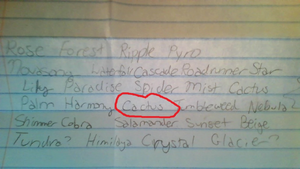 Rose Forest Ripple Pyro
Waterfall Cascade Roadrunner Star
Lily Paradise Spider Mist Cactus
Palm Harmony Cactus Tumbleweed Nebula
Shimmer Cobra Salamander Sunset Beige
Tundra? Himilaya Crystal Glacier?